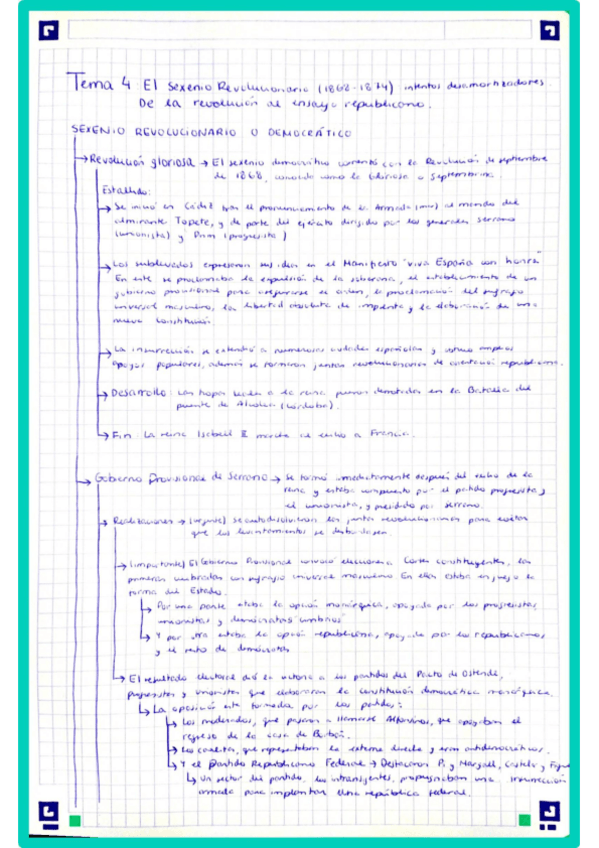 Tema 4 El Sexenio Revolucionario (1868-1874) intentos desamortizadores.
De la revolución al ensayo republicano.
SEXENIO REVOLUCIONARIO O DEMOCRÁTICO
→ Revolución gloriosa → El sexenio democrático comenzó con la Revolución de septiembre
de 1868, conocido como la Gloriosa o Septembrina.
Estallido:
→ Se inició en Cádiz con el pronunciamiento de la Armada al mando del
almirante Topete, y de parte del ejército dirigido por los generales Serrano
(unionista) y Prim (progresista)
→ Los sublevados expresaron sus ideas en el Manifiesto "Viva España con honra"
En este se proclamaba la expulsión de la soberana, el establecimiento de un
gobierno provisional para asegurarse el orden, la proclamación del sufragio
universal masculino, la libertad absoluta de imprenta y la elaboración de una
nueva Constitución.
→ La insurrección se extendió a numerosas ciudades españolas y obtuvo amplios
apoyos populares, además se formaron juntas revolucionarias de orientación republicana.
→ Desarrollo: Las tropas leales a la reina fueron derrotadas en la Batalla del
puente de Alcolea (Córdoba).
→ Fin: La reina Isabel II marcha al exilio a Francia.
→ Gobierno Provisional de Serrano → Se formó inmediatamente después del exilio de la
reina y estaba compuesto por el partido progresista y
el unionista, y presidido por Serrano.
→ Realizaciones → (urgente) se autodisolvieron las juntas revolucionarias para evitar
que los levantamientos se desbordasen.
→ (importante) El Gobierno Provisional convocó elecciones a Cortes constituyentes, las
primeras celebradas con sufragio universal masculino En ellas estaba en juego la
forma del Estado.
→ Por una parte estaba la opción monárquica, apoyada por los progresistas,
unionistas y demócratas "cimbrios"
→ Y por otra estaba la opción republicana, apoyada por los republicanos
y el resto de demócratas
→ El resultado electoral dió la victoria a los partidos del Pacto de Ostende,
progresistas y unionistas que elaboraron la constitución democrática monárquica.
→ La oposición está formada por los partidos:
→ Los moderados, que pasaron a llamarse Alfonsinos, que apoyaban el
regreso de la casa de Borbón.
→ Los carlistas, que representaban la extrema derecha y eran antidemocráticos.
→ Y el Partido Republicano Federal → Destacaron Pi y Margall, Castelar y Figue
→ Un sector del partido, los intransigentes, propugnaban una insurrección
armada para implantar una república federal.